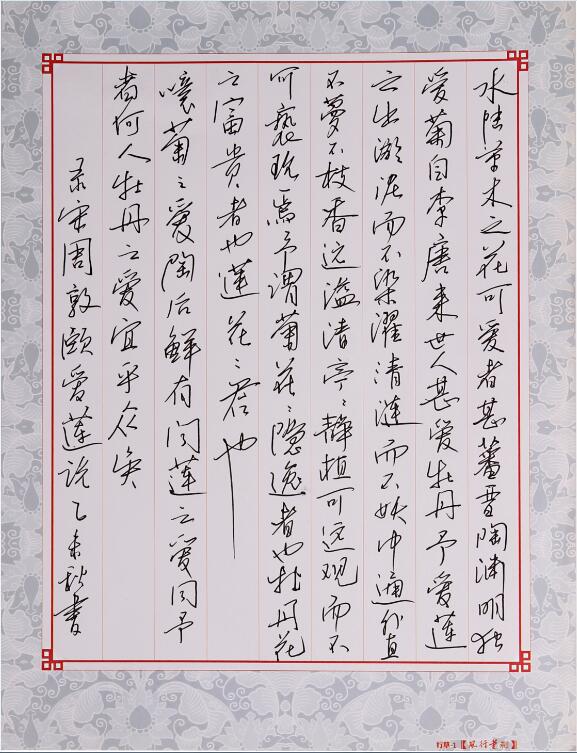 水陆草木之花可爱者甚蕃晋陶渊明独
爱菊自李唐来世人甚爱牡丹予爱莲
之出淤泥而不染濯清涟而不妖中通外直
不蔓不枝香远溢清亭〻静植可远观而不
可亵玩焉予谓菊花〻隐逸者也牡丹花
之富贵者也莲花〻君也
噫菊之爱陶后鲜有闻莲之爱同予
者何人牡丹之爱宜乎众矣
录宋周敦颐爱莲说乙未秋书
行草-1【风行书刻】